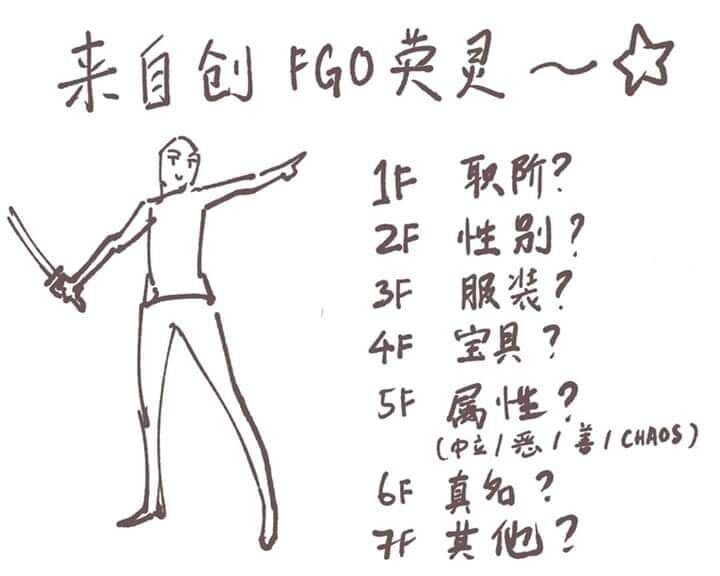 来自创FGO英灵～☆
1F 职阶?
2F 性别?
3F 服装?
4F 宝具?
5F 属性?
(中立/恶/善/CHAOS)
6F 真名?
7F 其他?